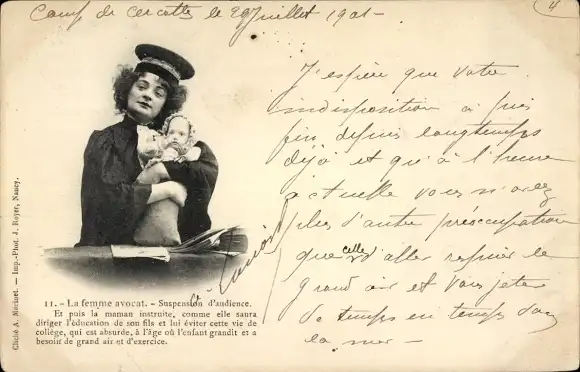 Camp de Cercottes le 29 Juillet 1901 -
4
J'espère que votre
indisposition a pris
fin depuis longtemps
déjà et qu'à l'heure
actuelle vous n'avez
plus d'autre préoccupation
que celle d'aller respirer le
grand air et vous jeter
de temps en temps dans
la mer -
11. - La femme avocat. - Suspension d'audience.
Et puis la maman instruite, comme elle saura
diriger l'éducation de son fils et lui éviter cette vie de
collège, qui est absurde, à l'âge où l'enfant grandit et a
besoin de grand air et d'exercice.
Cliché A. Mérinet. — Imp.-Phot. J. Royer, Nancy.